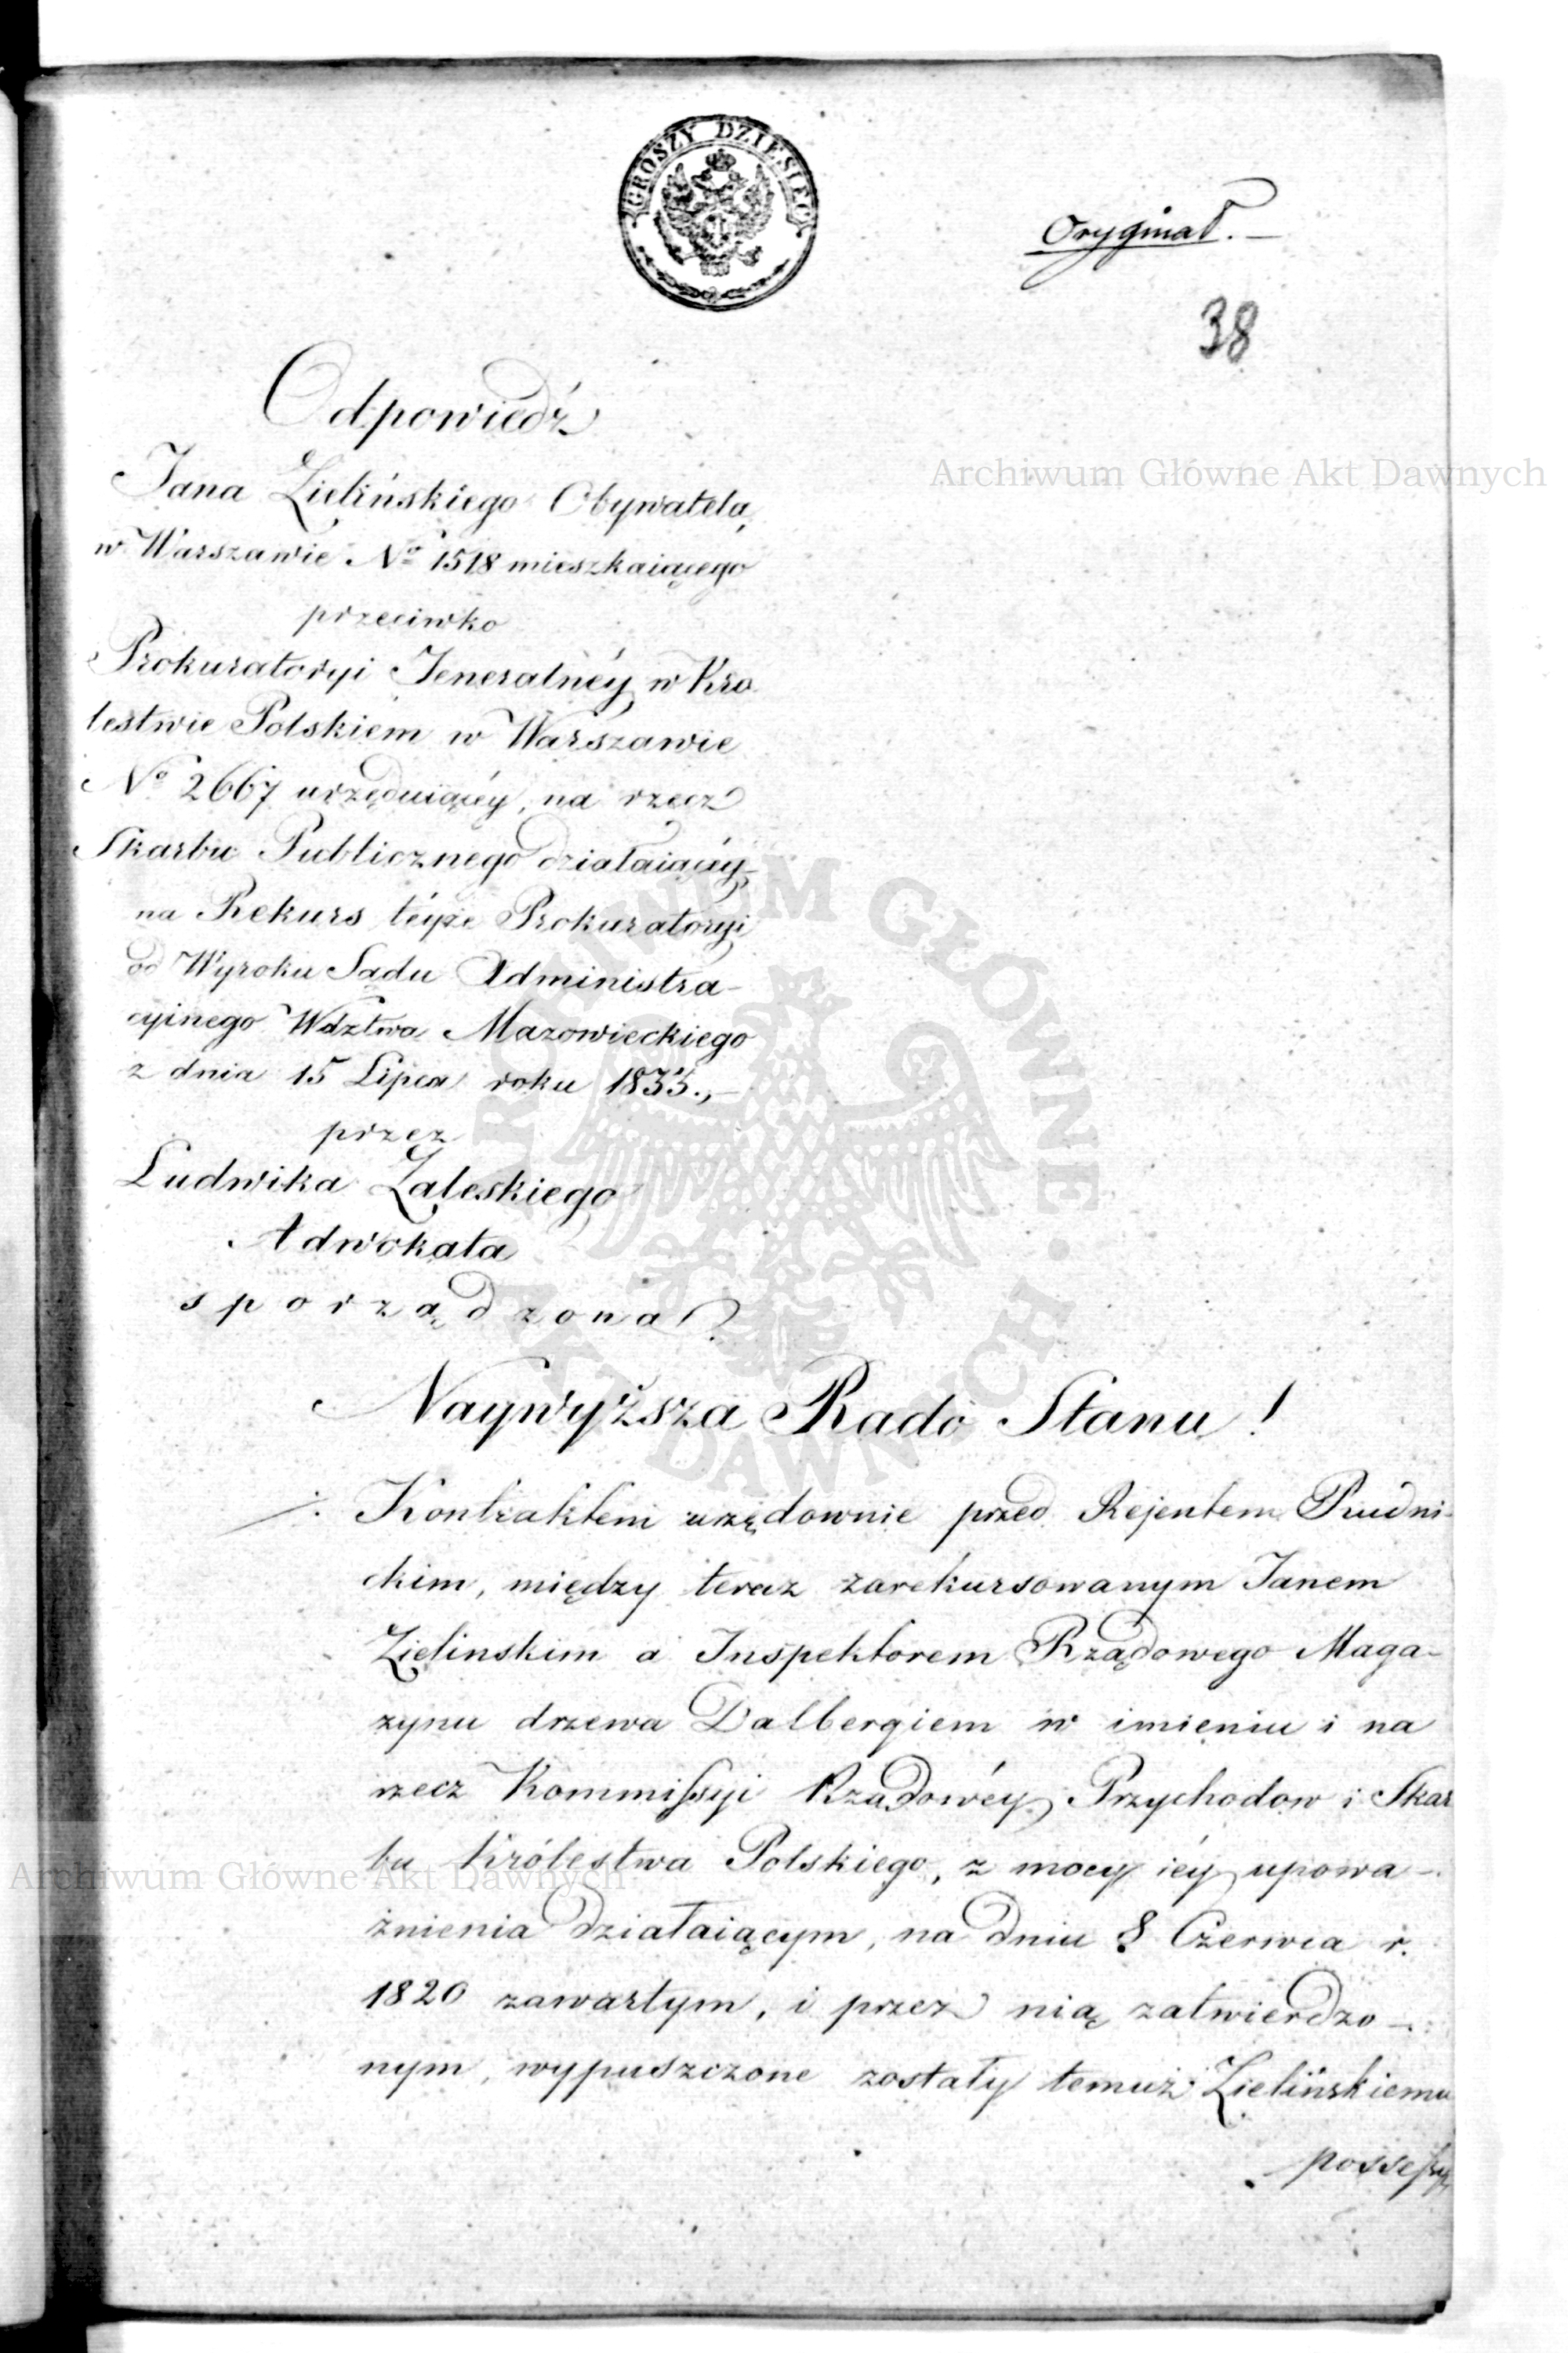 GROSZY DZIESIĘĆ
Oryginał. —
38
Odpowiedź
Jana Zielińskiego Obywatela,
w Warszawie No 1518 mieszkaiącego
przeciwko
Prokuratoryi Jeneralnéy w Kro
lestwie Polskiem w Warszawie
No 2667 urzęduiącéy, na rzecz
Skarbu Publicznego działaiącéy
na Rekurs téyże Prokuratoryi
od Wyroku Sadu Administra-
cyinego Wdztwa Mazowieckiego
z dnia 15 Lipca roku 1833., —
przez
Ludwika Zaleskiego
Adwokata
sporządzona
Naywyższa Rado Stanu!
Kontraktem urzędownie przed Rejentem Rudni-
ckim, między teraz zarekursowanym Janem
Zielinskim a Inspektorem Rządowego Maga-
zynu drzewa Dalbergiem w imieniu i na
rzecz Kommissyi Rządowéy Przychodow i Skar
bu Królestwa Polskiego, z mocy iéy upowa-
żnienia działaiącym, na dniu 8 Czerwca r.
1820 zawartym, i przez nią zatwierdzo-
nym, wypuszczone zostały temuż Zielińskiemu
possessy
Archiwum Główne Akt Dawnych
Archiwum Główne Akt Dawnych
ARCHIWUM GŁÓWNE AKT DAWNYCH